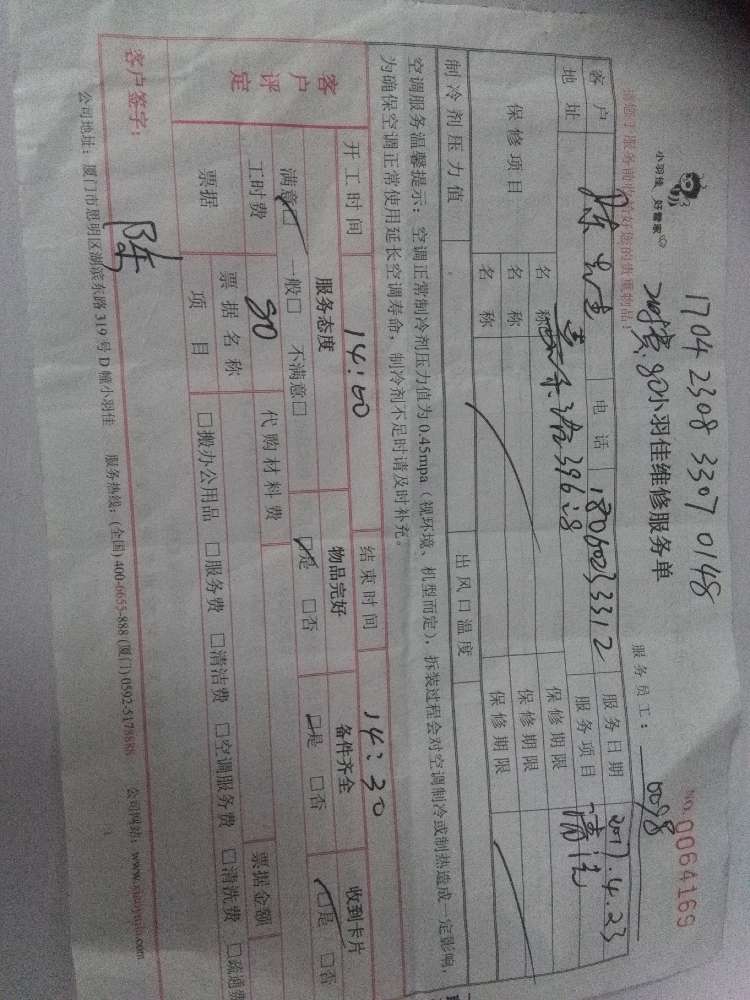 1704 2308 3307 0148
小羽佳 好管家
80
小羽佳维修服务单
NO. 0064169
服务员工: 0098
请您于服务前收拾好您的贵重物品!
客户 陈 电话 18060233312 服务日期 2017.4.23
地址 396 服务项目 清洗
保修项目 名称 保修期限
名称 保修期限
名称 保修期限
制冷剂压力值 出风口温度
空调服务温馨提示: 空调正常制冷剂压力值为0.45mpa (视环境、机型而定), 拆装过程会对空调制冷或制热造成一定影响,
为确保空调正常使用延长空调寿命, 制冷剂不足时请及时补充。
客户评定 开工时间 14:00 结束时间 14:30
服务态度 物品完好 备件齐全 收到卡片
满意☑ 一般□ 不满意□ ☑是 □否 ☑是 □否 ☑是 □否
工时费 80 代购材料费 票据金额
票据 票据名称
项目 □搬办公用品 □服务费 □清洁费 □空调服务费 □清洗费 □疏通费
客户签字: 陈
公司地址: 厦门市思明区湖滨东路319号D幢小羽佳 服务热线: (全国) 400-6655-888 (厦门) 0592-5178888 公司网站: www.xiaoyujia.com